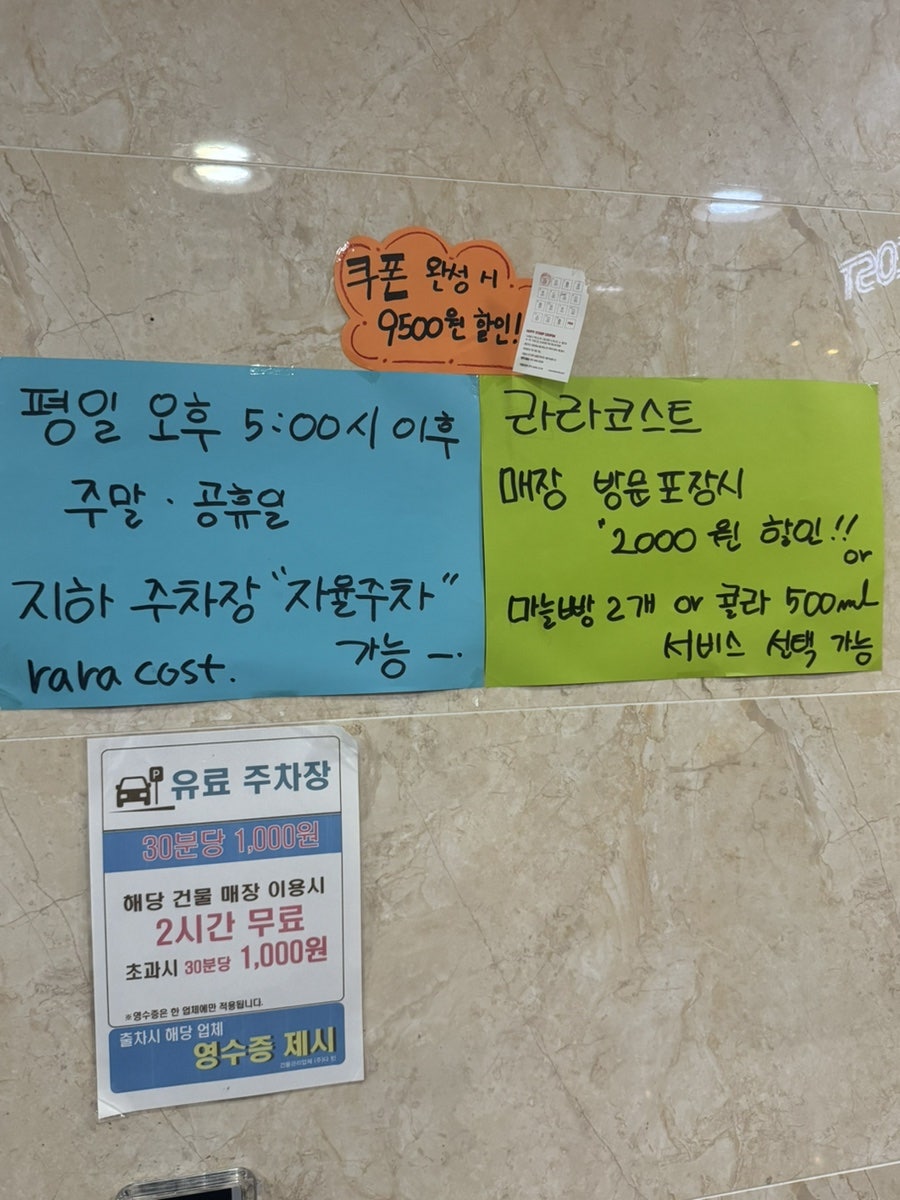 쿠폰 완성 시
9500원 할인!
평일 오후 5:00시 이후
주말 · 공휴일
지하 주차장 "자율주차"
가능 -.
rara cost.
라라코스트
매장 방문 포장시
2000원 할인!!
or
마늘빵 2개 or 콜라 500ml
서비스 선택 가능
P
유료 주차장
30분당 1,000원
해당 건물 매장 이용시
2시간 무료
초과시 30분당 1,000원
※영수증은 한 업체에만 적용됩니다.
출차시 해당 업체
영수증 제시